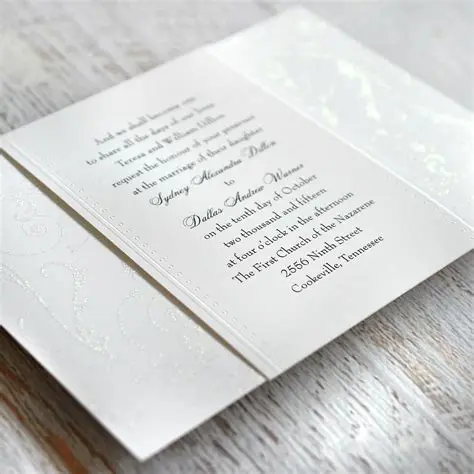 And we shall become one
to share all the days of our lives
Teresa and William Dillon
request the honour of your presence
at the marriage of their daughter
Sydney Alexandra Dillon
to
Dallas Andrew Warner
on the tenth day of October
two thousand and fifteen
at four o'clock in the afternoon
The First Church of the Nazarene
2556 Ninth Street
Cookeville, Tennessee